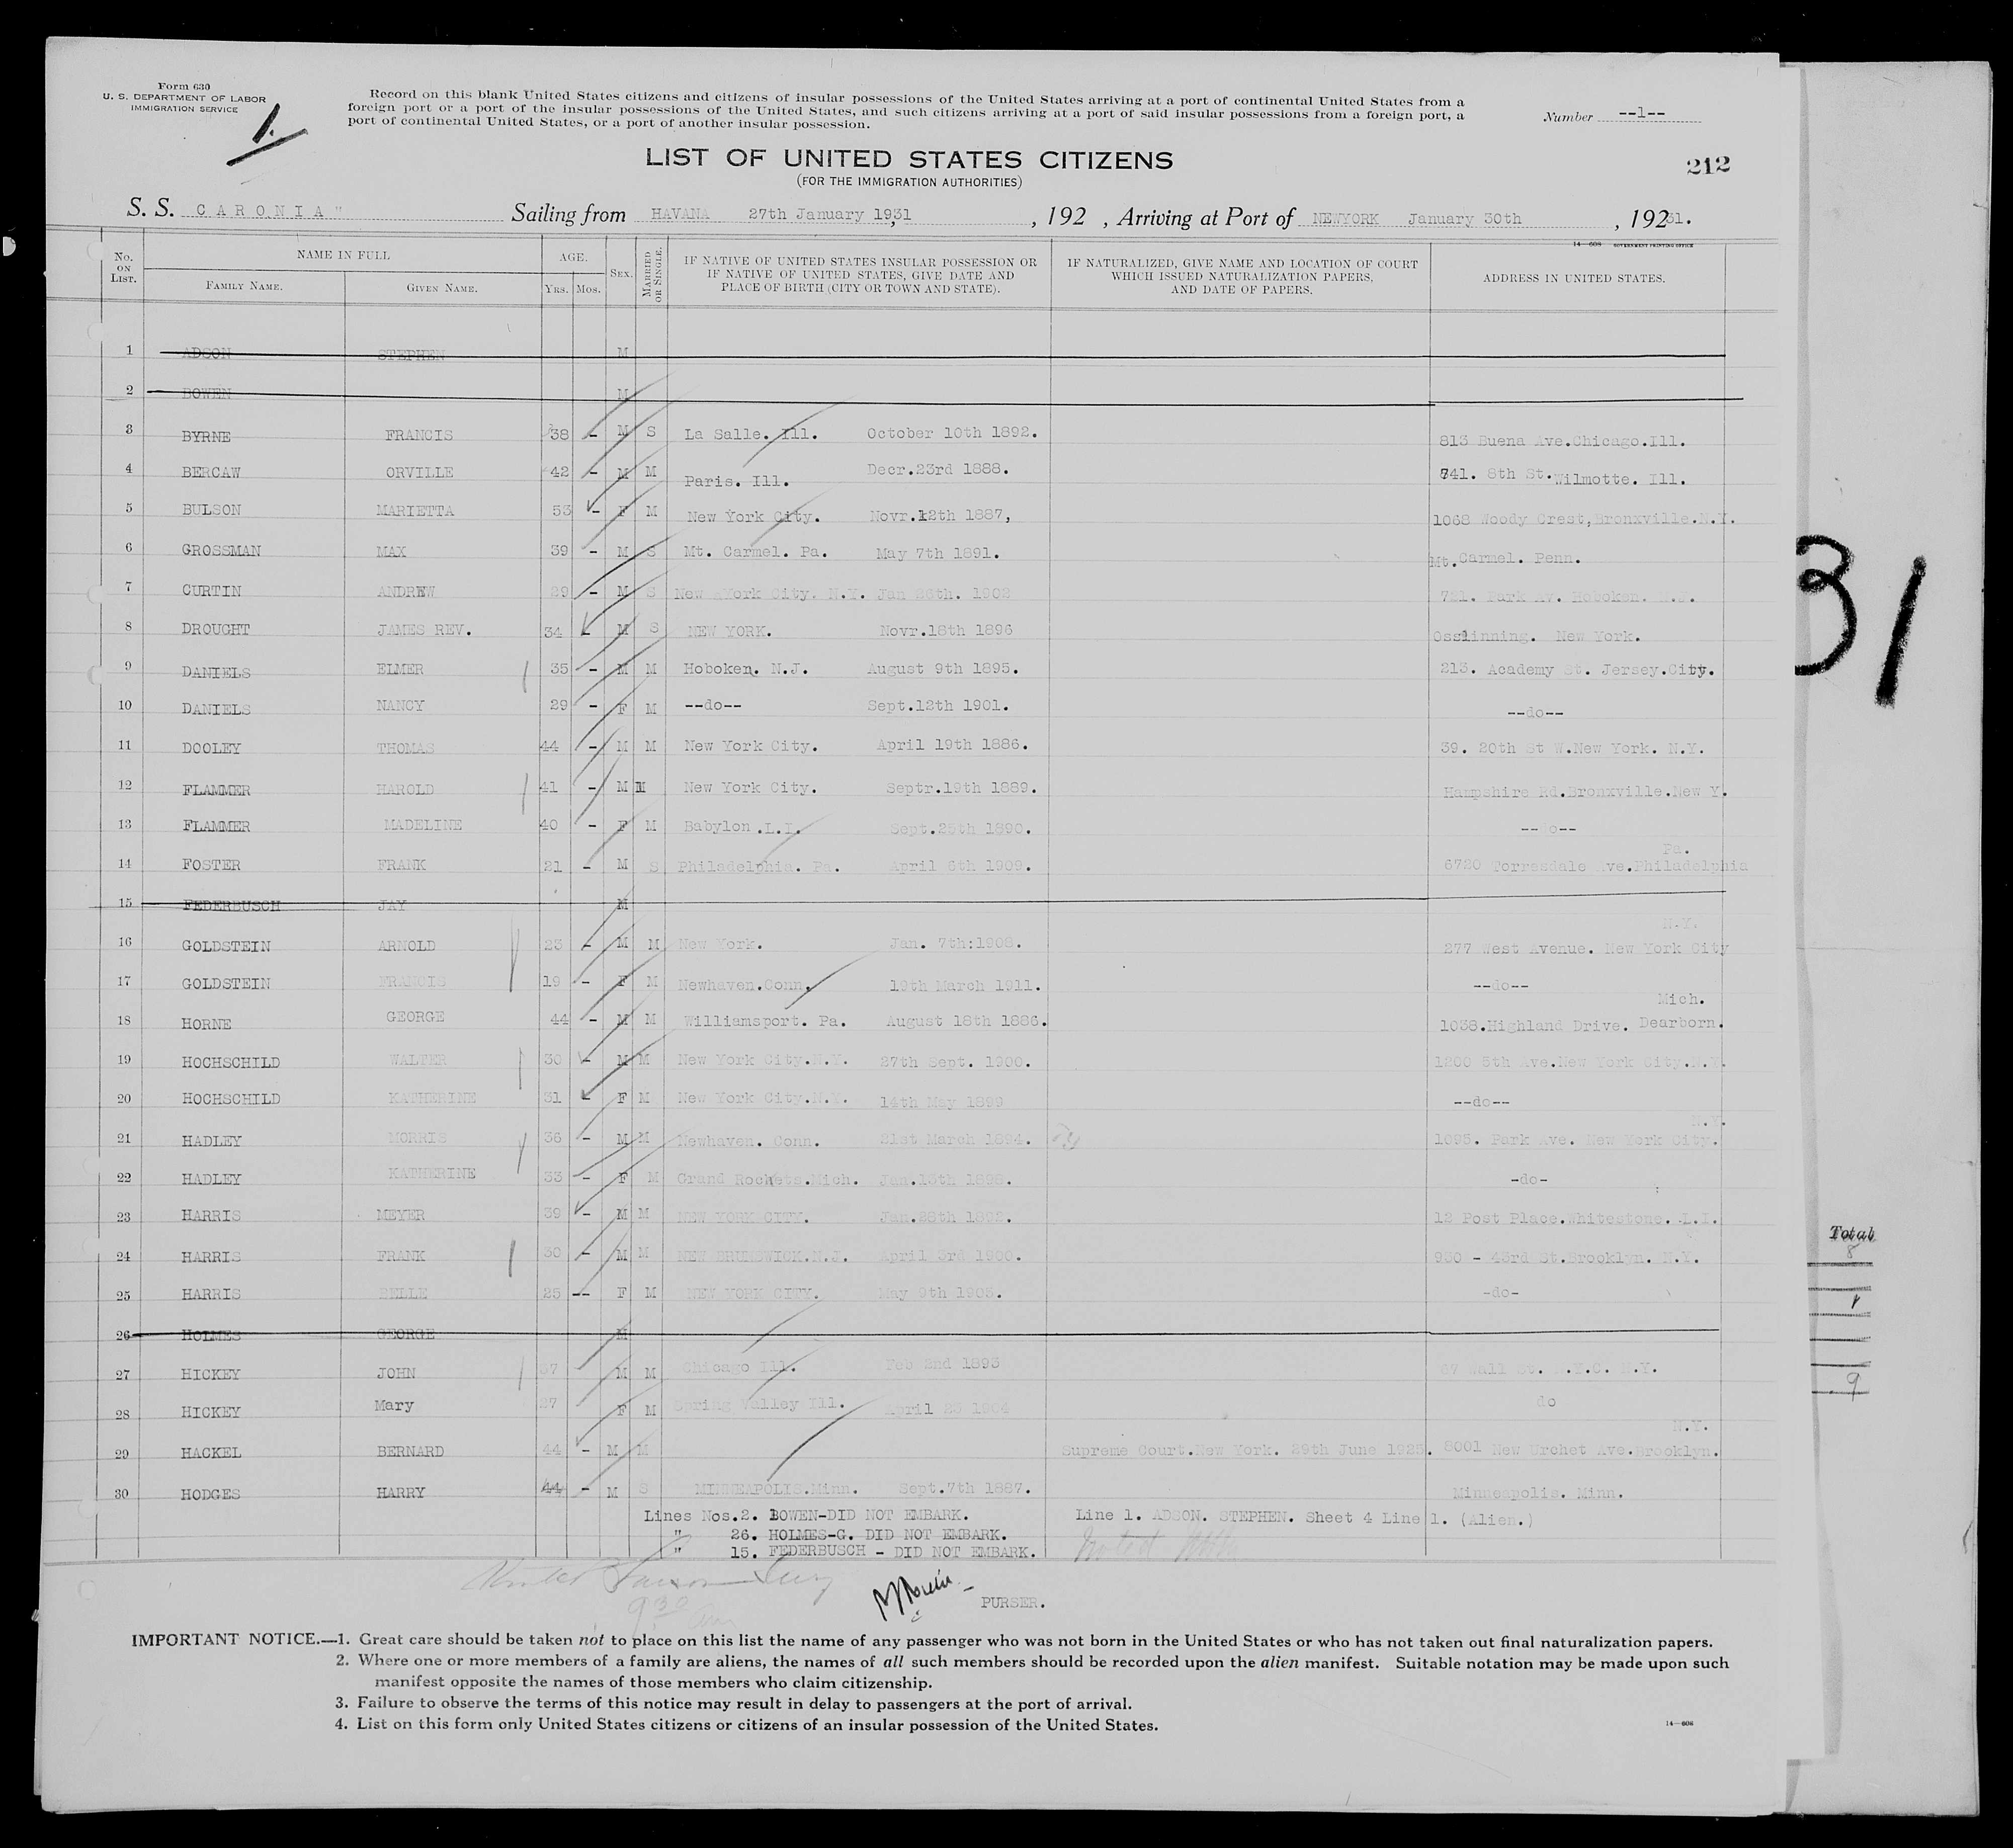 Form 630
U. S. DEPARTMENT OF LABOR
IMMIGRATION SERVICE
1.
Record on this blank United States citizens and citizens of insular possessions of the United States arriving at a port of continental United States from a
foreign port or a port of the insular possessions of the United States, and such citizens arriving at a port of said insular possessions from a foreign port, a
port of continental United States, or a port of another insular possession.
Number --1--
LIST OF UNITED STATES CITIZENS
(FOR THE IMMIGRATION AUTHORITIES)
212
S. S. CARONIA" Sailing from HAVANA 27th January 1931, 192 , Arriving at Port of NEWYORK January 30th , 19231.
14—608 GOVERNMENT PRINTING OFFICE
No. ON LIST. NAME IN FULL FAMILY NAME. GIVEN NAME. AGE. YRS. MOS. SEX. MARRIED OR SINGLE. IF NATIVE OF UNITED STATES INSULAR POSSESSION OR IF NATIVE OF UNITED STATES, GIVE DATE AND PLACE OF BIRTH (CITY OR TOWN AND STATE). IF NATURALIZED, GIVE NAME AND LOCATION OF COURT WHICH ISSUED NATURALIZATION PAPERS, AND DATE OF PAPERS. ADDRESS IN UNITED STATES.
1 ADSON STEPHEN M
2 BOWEN M
3 BYRNE FRANCIS 38 - M S La Salle. Ill. October 10th 1892. 813 Buena Ave.Chicago.Ill.
4 BERCAW ORVILLE 42 - M M Paris. Ill. Decr.23rd 1888. 741. 8th St.Wilmotte. Ill.
5 BULSON MARIETTA 53 - F M New York City. Novr.12th 1887, 1068 Woody Crest,Bronxville.N.Y.
6 GROSSMAN MAX 39 - M S Mt. Carmel. Pa. May 7th 1891. Mt.Carmel. Penn.
7 CURTIN ANDREW 29 - M S New York City. N.Y. Jan 26th. 1902 721. Park Av. Hoboken. N.J.
8 DROUGHT JAMES REV. 34 - M S NEW YORK. Novr.18th 1896 Ossinning. New York.
9 DANIELS ELMER 35 - M M Hoboken. N.J. August 9th 1895. 213. Academy St. Jersey.City.
10 DANIELS NANCY 29 - F M --do-- Sept.12th 1901. --do--
11 DOOLEY THOMAS 44 - M M New York City. April 19th 1886. 39. 20th St W.New York. N.Y.
12 FLAMMER HAROLD 41 - M M New York City. Septr.19th 1889. Hampshire Rd.Bronxville.New Y.
13 FLAMMER MADELINE 40 - F M Babylon .L.I. Sept.25th 1890. --do--
14 FOSTER FRANK 21 - M S Philadelphia. Pa. April 6th 1909. 6720 Torresdale Ave.Philadelphia Pa.
15 FEDERBUSCH JAY M
16 GOLDSTEIN ARNOLD 23 - M M New York. Jan. 7th:1908. 277 West Avenue. New York City N.Y.
17 GOLDSTEIN FRANCIS 19 - F M Newhaven.Conn. 19th March 1911. --do--
18 HORNE GEORGE 44 - M M Williamsport. Pa. August 18th 1886. 1038.Highland Drive. Dearborn. Mich.
19 HOCHSCHILD WALTER 30 - M M New York City.N.Y. 27th Sept. 1900. 1200 5th Ave.New York City.N.Y.
20 HOCHSCHILD KATHERINE 31 - F M New York City.N.Y. 14th May 1899 --do--
21 HADLEY MORRIS 36 - M M Newhaven. Conn. 21st March 1894. 1095. Park Ave. New York City. N.Y.
22 HADLEY KATHERINE 33 - F M Grand Mich. Jan.13th -do-
23 HARRIS MEYER 39 - M M NEW YORK CITY. Jan.28th 1892. 12 Post Place.Whitestone. L.I.
24 HARRIS FRANK 30 - M M NEW BRUNSWICK.N.J. April 3rd 1900. 930 - 43rd St.Brooklyn. N.Y.
25 HARRIS BELLE 25 -- F M NEW YORK CITY. May 9th 1905. -do-
26 HOLMES GEORGE M
27 HICKEY JOHN 37 M M Chicago Ill. Feb 2nd 1893 67 Wall St. N.Y.C. N.Y.
28 HICKEY Mary 27 F M Spring Valley Ill. April 23 1904 do
29 HACKEL BERNARD 44 - M M Supreme Court.New York. 29th June 1925. 8001 New Urchet Ave.Brooklyn. N.Y.
30 HODGES HARRY 44 - M S MINNEAPOLIS.Minn. Sept.7th 1887. Minneapolis. Minn.
Lines Nos.2. BOWEN-DID NOT EMBARK. Line 1. ADSON. STEPHEN. Sheet 4 Line 1. (Alien.)
" 26. HOLMES-G. DID NOT EMBARK.
" 15. FEDERBUSCH - DID NOT EMBARK.
9 30 am
PURSER.
IMPORTANT NOTICE.—1. Great care should be taken not to place on this list the name of any passenger who was not born in the United States or who has not taken out final naturalization papers.
2. Where one or more members of a family are aliens, the names of all such members should be recorded upon the alien manifest. Suitable notation may be made upon such
manifest opposite the names of those members who claim citizenship.
3. Failure to observe the terms of this notice may result in delay to passengers at the port of arrival.
4. List on this form only United States citizens or citizens of an insular possession of the United States.
14—608
31
Total
8
1
9